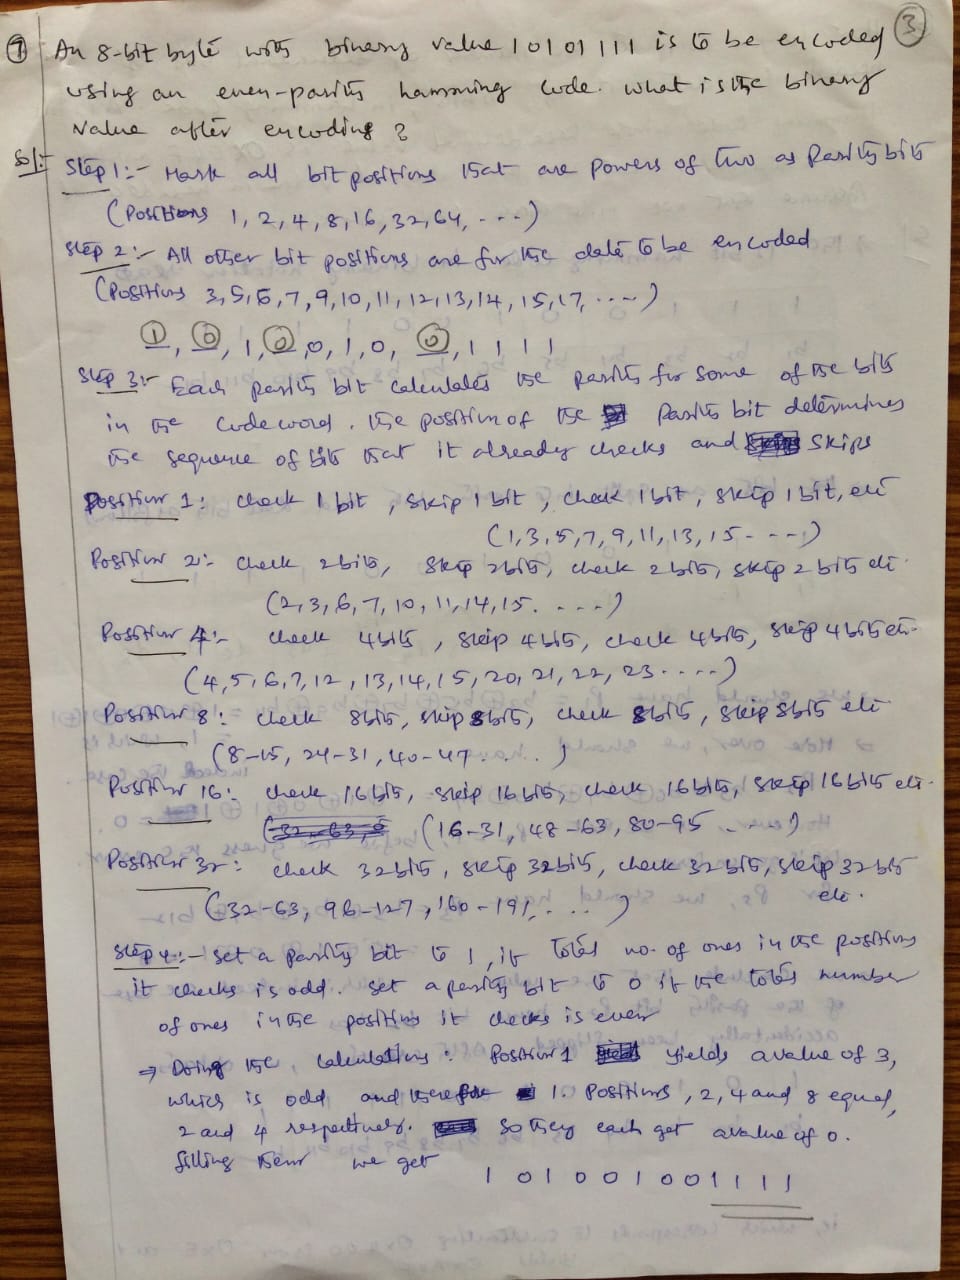 3
7 An 8-bit byte with binary value 10101111 is to be encoded
using an even-parity hamming code. what is the binary
value after encoding?
Sol:- Step 1:- Mark all bit positions that are powers of two as Parity bits
(Positions 1, 2, 4, 8, 16, 32, 64, ----)
Step 2:- All other bit positions are for the data to be encoded
(Positions 3, 5, 6, 7, 9, 10, 11, 12, 13, 14, 15, 17, ----)
1, 0, 1, 0, 0, 1, 0, 0, 1 1 1 1
Step 3:- Each parity bit calculates the parity for some of the bits
in the codeword. the position of the Parity bit determines
the sequence of bits that it already checks and skips
Position 1: check 1 bit, skip 1 bit, check 1 bit, skip 1 bit, etc
(1, 3, 5, 7, 9, 11, 13, 15 - - -)
Position 2:- check 2 bits, skip 2 bits, check 2 bits, skip 2 bits etc.
(2, 3, 6, 7, 10, 11, 14, 15. - - - -)
Position 4:- check 4 bits, skip 4 bits, check 4 bits, skip 4 bits etc.
(4, 5, 6, 7, 12, 13, 14, 15, 20, 21, 22, 23 .....)
Position 8: check 8 bits, skip 8 bits, check 8 bits, skip 8 bits etc
(8-15, 24-31, 40-47 ......)
Position 16:- check 16 bits, skip 16 bits, check 16 bits, skip 16 bits etc.
(16-31, 48-63, 80-95 ----)
Position 32: check 32 bits, skip 32 bits, check 32 bits, skip 32 bits
etc.
(32-63, 96-127, 160-191, ....)
Step 4:- set a parity bit to 1, if total no. of ones in the positions
it checks is odd. set a parity bit to 0 if the total number
of ones in the positions it checks is even
⇒ Doing the calculations: Position 1 yields a value of 3,
which is odd and therefor 1. Positions, 2, 4 and 8 equal,
2 and 4 respectively. So they each get a value of 0.
filling them we get
1 0 1 0 0 1 0 0 1 1 1 1